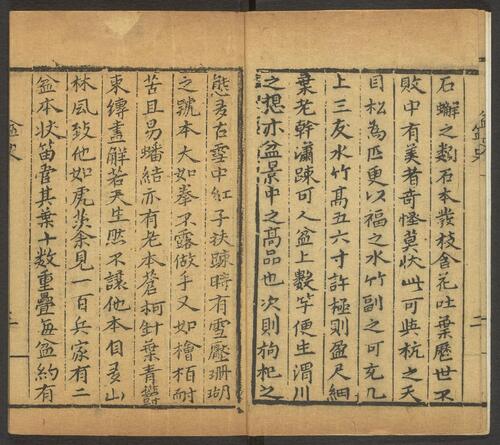 石蠏之類石本發枝含花吐葉歷世不
敗中有美者奇怪莫狀此可與杭之天
目松為匹更以福之水竹副之可充几
上三友水竹高五六寸許極則盈尺細
葉老幹瀟踈可人盆上數竿便生渭川
之想亦盆景中之高品也次則枸杞之
態多古雪中紅子扶踈時有雪壓珊瑚
之號本大如拳不露做手又如檜栢耐
苦且易蟠結亦有老本蒼柯針葉青鬱
束縛盡解若天生然不讓他本自多山
林風致他如虎茨余見一百兵家有二
盆本狀笛管其葉十數重疊每盆約有